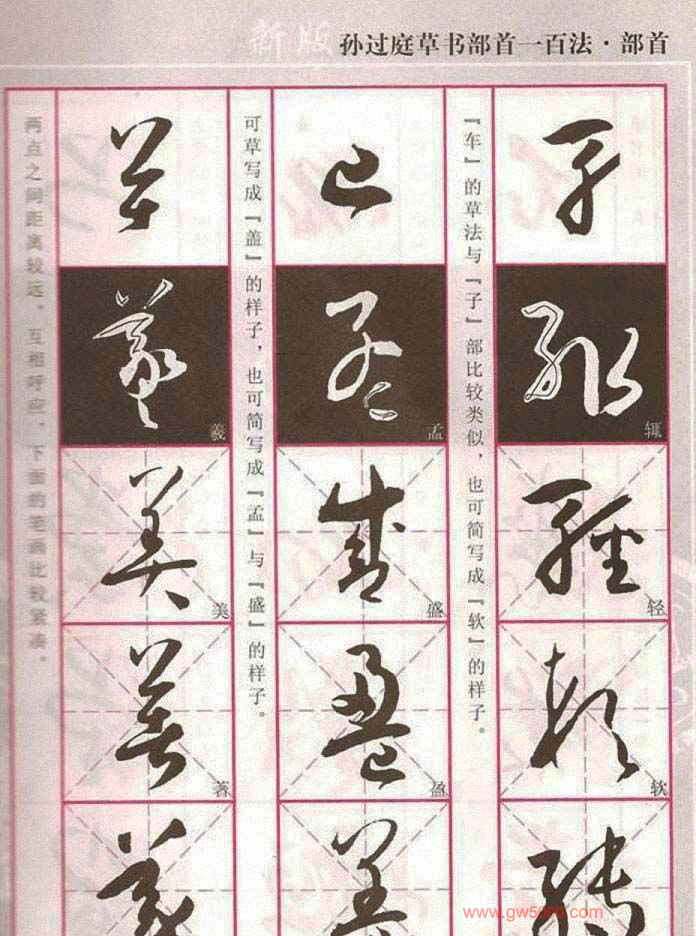 新版 孙过庭草书部首一百法·部首
『车』的草法与『子』部比较类似，也可简写成『软』的样子。
辄
轻
软
可草写成『盖』的样子，也可简写成『孟』与『盛』的样子。
孟
盛
盈
两点之间距离较远，互相呼应，下面的笔画比较紧凑。
羲
美
著
www.gw5000.com